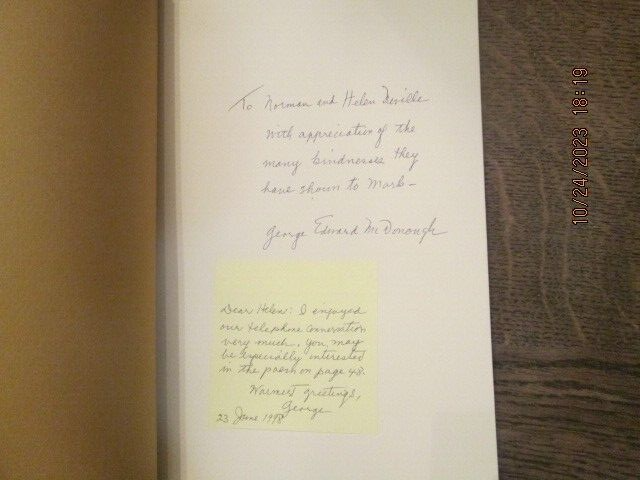 To Norman and Helen Deville
with appreciation of the
many kindnesses they
have shown to Mark—
George Edward McDonough
Dear Helen: I enjoyed
our telephone conversation
very much. You may
be especially interested
in the poem on page 48.
Warmest greetings,
George
23 June 1998
10/24/2023 18:19